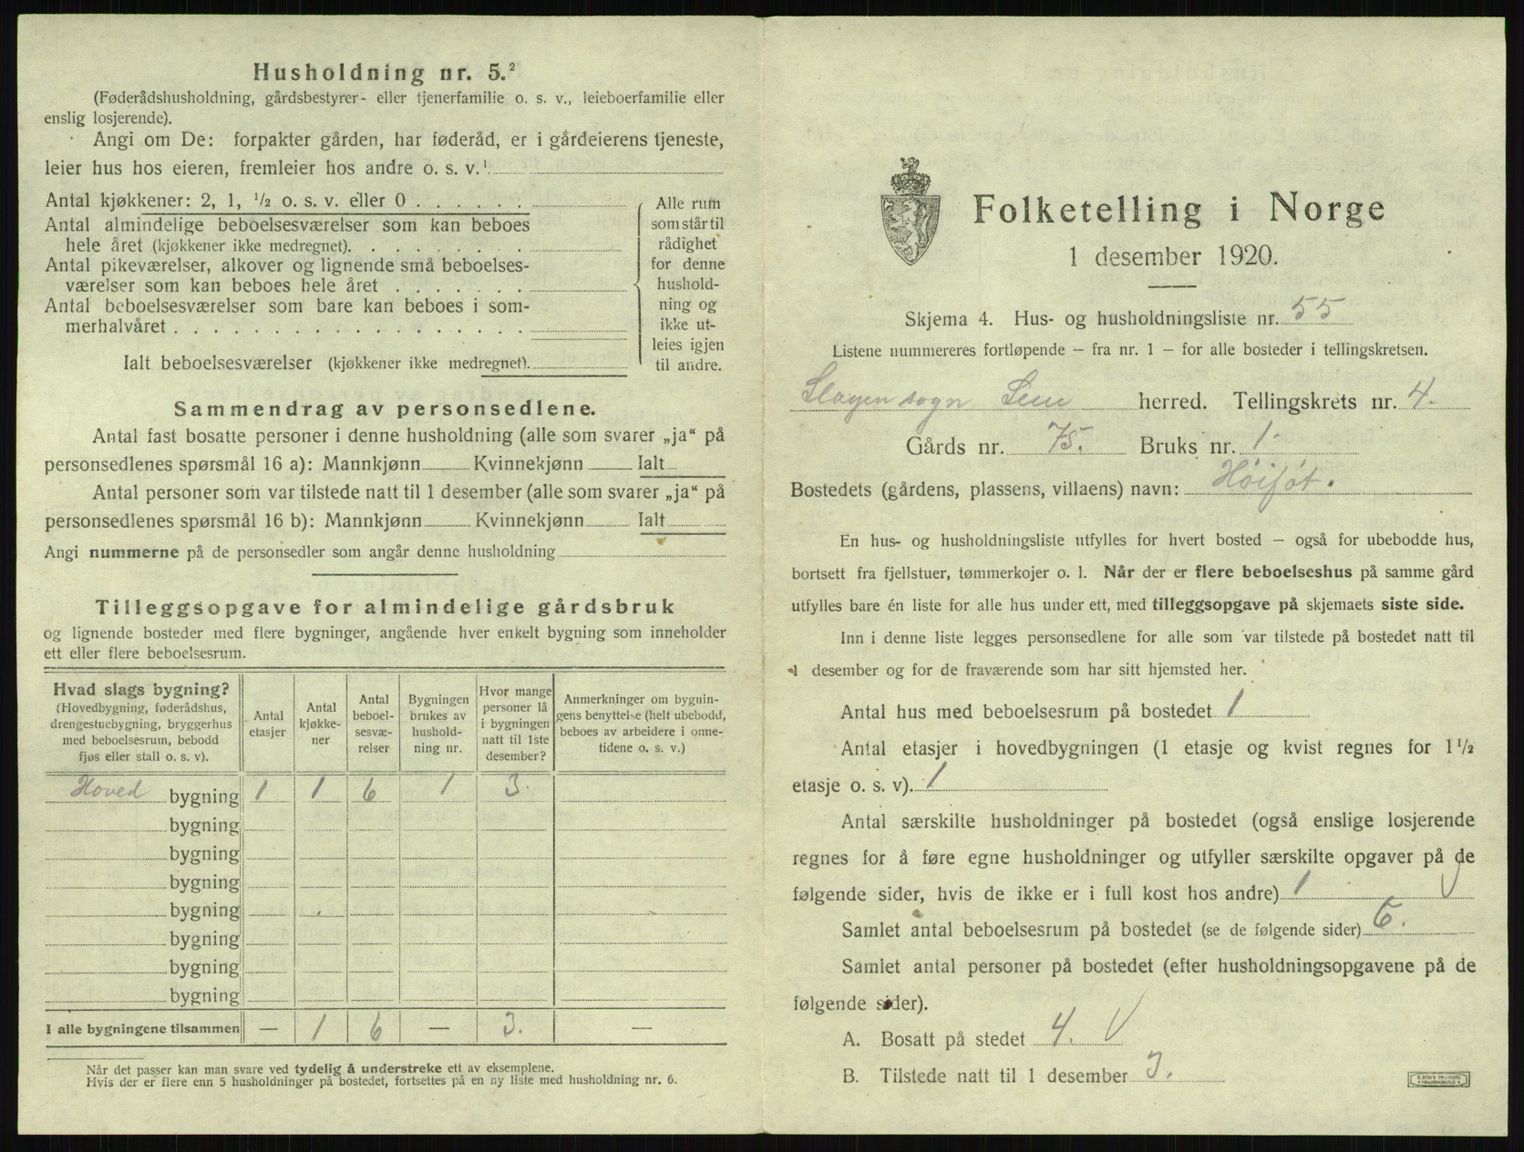 Husholdning nr. 5.²
(Føderådshusholdning, gårdsbestyrer- eller tjenerfamilie o. s. v., leieboerfamilie eller
enslig losjerende).
Angi om De: forpakter gården, har føderåd, er i gårdeierens tjeneste,
leier hus hos eieren, fremleier hos andre o. s. v.¹
Antal kjøkkener: 2, 1, ½ o. s. v. eller 0
Antal almindelige beboelsesværelser som kan beboes
hele året (kjøkkener ikke medregnet).
Antal pikeværelser, alkover og lignende små beboelses-
værelser som kan beboes hele året
Antal beboelsesværelser som bare kan beboes i som-
merhalvåret
Ialt beboelsesværelser (kjøkkener ikke medregnet).
Alle rum
som står til
rådighet
for denne
hushold-
ning og
ikke ut-
leies igjen
til andre.
Sammendrag av personsedlene.
Antal fast bosatte personer i denne husholdning (alle som svarer „ja“ på
personsedlenes spørsmål 16 a): Mannkjønn Kvinnekjønn Ialt
Antal personer som var tilstede natt til 1 desember (alle som svarer „ja“ på
personsedlenes spørsmål 16 b): Mannkjønn Kvinnekjønn Ialt
Angi nummerne på de personsedler som angår denne husholdning
Tilleggsopgave for almindelige gårdsbruk
og lignende bosteder med flere bygninger, angående hver enkelt bygning som inneholder
ett eller flere beboelsesrum.
Hvad slags bygning?
(Hovedbygning, føderådshus,
drengestuebygning, bryggerhus
med beboelsesrum, bebodd
fjøs eller stall o. s. v).
Antal
etasjer
Antal
kjøkke-
ner
Antal
beboel-
sesvæ-
relser
Bygningen
brukes av
hushold-
ning nr.
Hvor mange
personer lå
i bygningen
natt til 1ste
desember?
Anmerkninger om bygnin-
gens benyttelse (helt ubebodd,
beboes av arbeidere i onne-
tidene o. s. v.)
Hoved bygning 1 1 6 1 3.
bygning
bygning
bygning
bygning
bygning
bygning
bygning
I alle bygningene tilsammen — 1 6 — 3. —
¹ Når det passer kan man svare ved tydelig å understreke ett av eksemplene.
² Hvis der er flere enn 5 husholdninger på bostedet, fortsettes på en ny liste med husholdning nr. 6.
Folketelling i Norge
1 desember 1920.
Skjema 4. Hus- og husholdningsliste nr. 55
Listene nummereres fortløpende – fra nr. 1 – for alle bosteder i tellingskretsen.
Slagen sogn Sem herred. Tellingskrets nr. 4.
Gårds nr. 75. Bruks nr. 1.
Bostedets (gårdens, plassens, villaens) navn: Høijföt.
En hus- og husholdningsliste utfylles for hvert bosted – også for ubebodde hus,
bortsett fra fjellstuer, tømmerkojer o. l. Når der er flere beboelseshus på samme gård
utfylles bare én liste for alle hus under ett, med tilleggsopgave på skjemaets siste side.
Inn i denne liste legges personsedlene for alle som var tilstede på bostedet natt til
1 desember og for de fraværende som har sitt hjemsted her.
Antal hus med beboelsesrum på bostedet 1
Antal etasjer i hovedbygningen (1 etasje og kvist regnes for 1½
etasje o. s. v). 1
Antal særskilte husholdninger på bostedet (også enslige losjerende
regnes for å føre egne husholdninger og utfyller særskilte opgaver på de
følgende sider, hvis de ikke er i full kost hos andre) 1
Samlet antal beboelsesrum på bostedet (se de følgende sider) 6.
Samlet antal personer på bostedet (efter husholdningsopgavene på de
følgende sider).
A. Bosatt på stedet 4.
B. Tilstede natt til 1 desember 3.